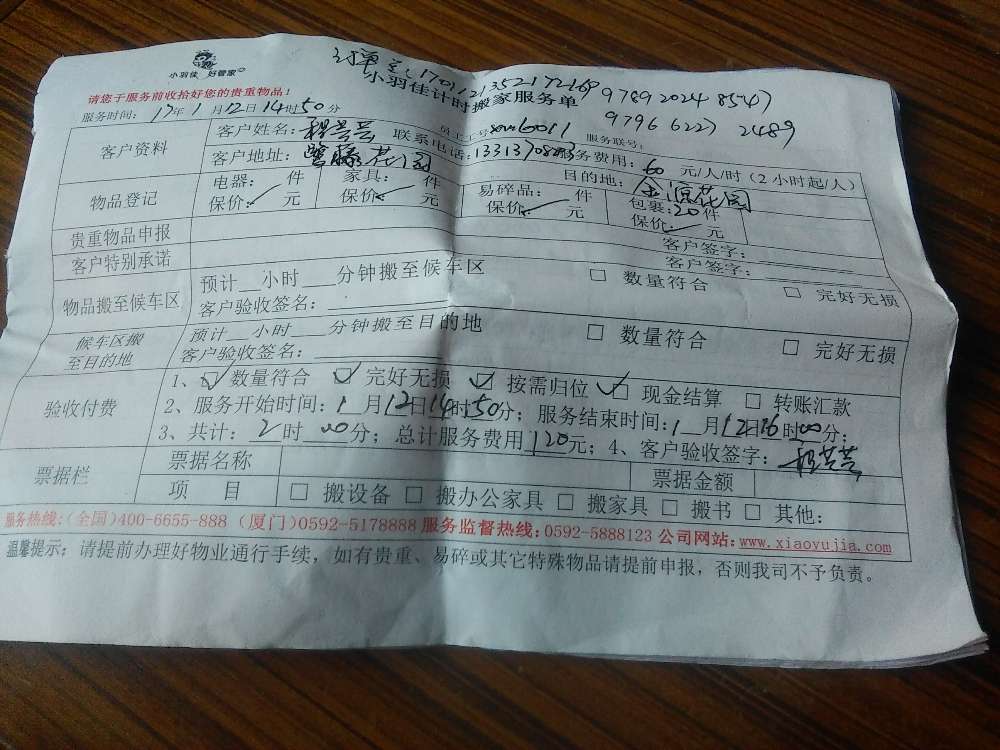 小羽佳 好管家
订单
小羽佳计时搬家服务单
9789 2024 8547
9796 6227 2489
请您于服务前收拾好您的贵重物品!
服务时间: 17年1月12日14时50分
员工工号
服务联号:
客户资料
客户姓名:
联系电话:
服务费用: 60 元/人/时(2小时起/人)
客户地址: 花园
目的地: 花园
物品登记
电器: 件
保价: ✓ 元
家具: 件
保价: ✓ 元
易碎品: 件
保价: ✓ 元
包裹: 20件
保价: ✓ 元
贵重物品申报
客户签字:
客户特别承诺
客户签字:
物品搬至候车区
预计__小时___分钟搬至候车区
□ 数量符合
□ 完好无损
客户验收签名:
候车区搬至目的地
预计__小时___分钟搬至目的地
□ 数量符合
□ 完好无损
客户验收签名:
验收付费
1、☑ 数量符合 ☑ 完好无损 ☑ 按需归位 ☑ 现金结算 □ 转账汇款
2、服务开始时间: 1月12日14时50分; 服务结束时间: 1月12日16时00分;
3、共计: 2时00分; 总计服务费用120元; 4、客户验收签字:
票据栏
票据名称
票据金额
项 目
□ 搬设备 □ 搬办公家具 □ 搬家具 □ 搬书 □ 其他:
服务热线:(全国)400-6655-888 (厦门)0592-5178888 服务监督热线:0592-5888123 公司网站:www.xiaoyujia.com
温馨提示: 请提前办理好物业通行手续, 如有贵重、易碎或其它特殊物品请提前申报, 否则我司不予负责。